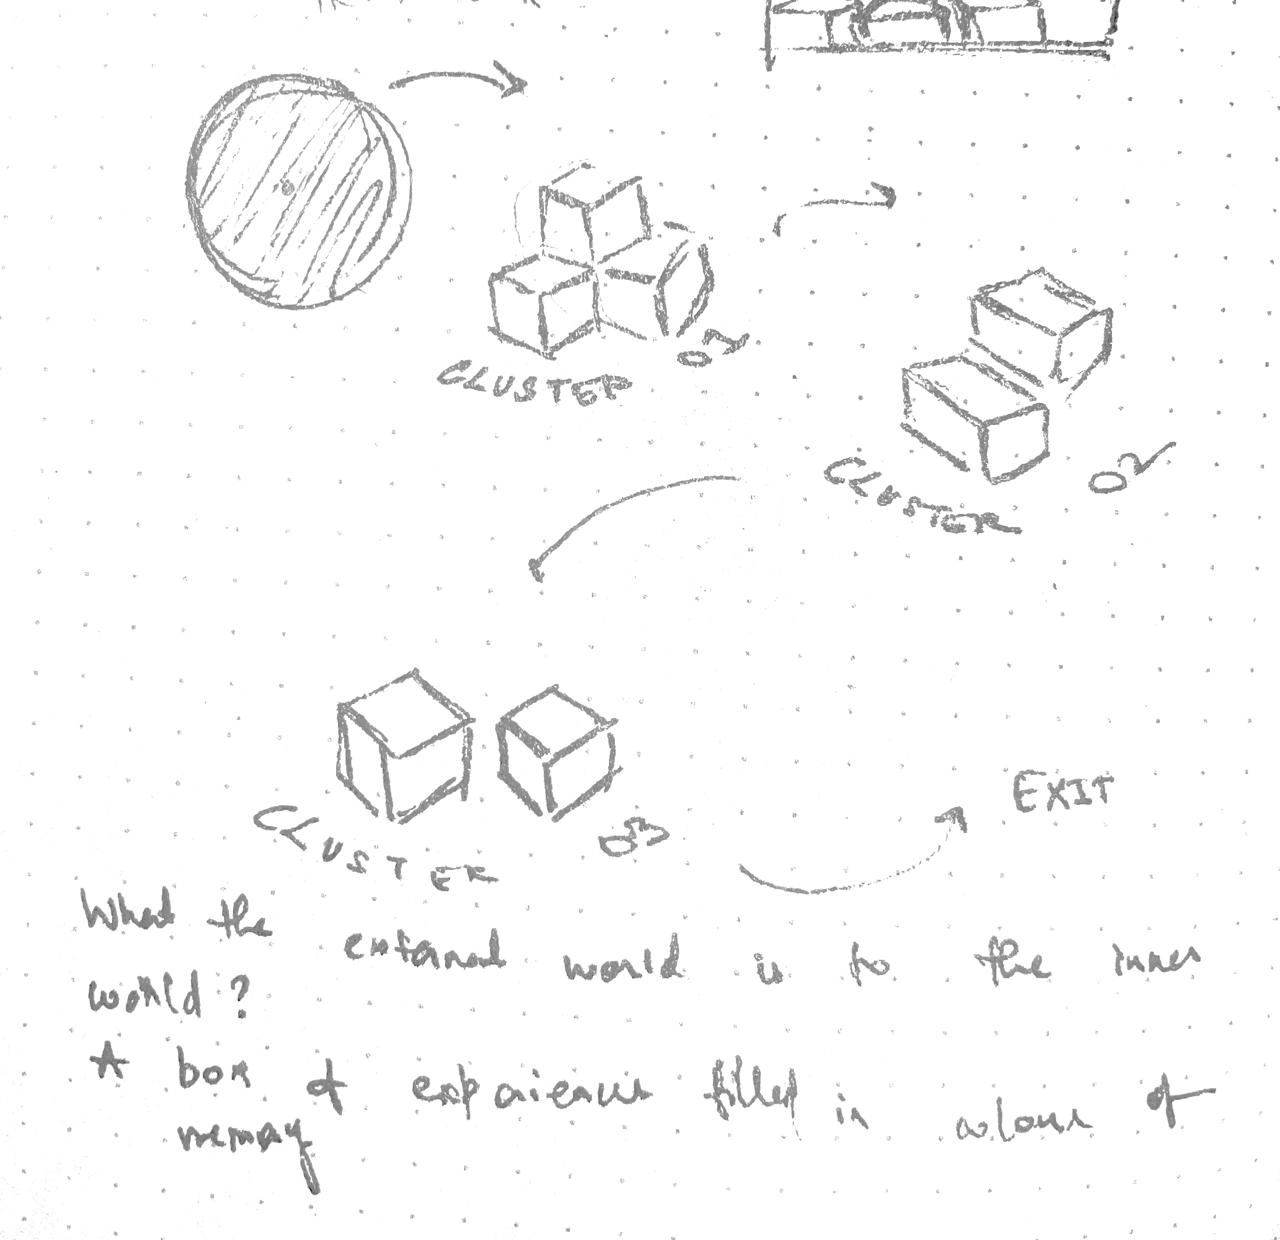 CLUSTER 01
CLUSTER 02
CLUSTER 03
EXIT
What the external world is to the inner
world?
A box of experiences filled in colour of
memory